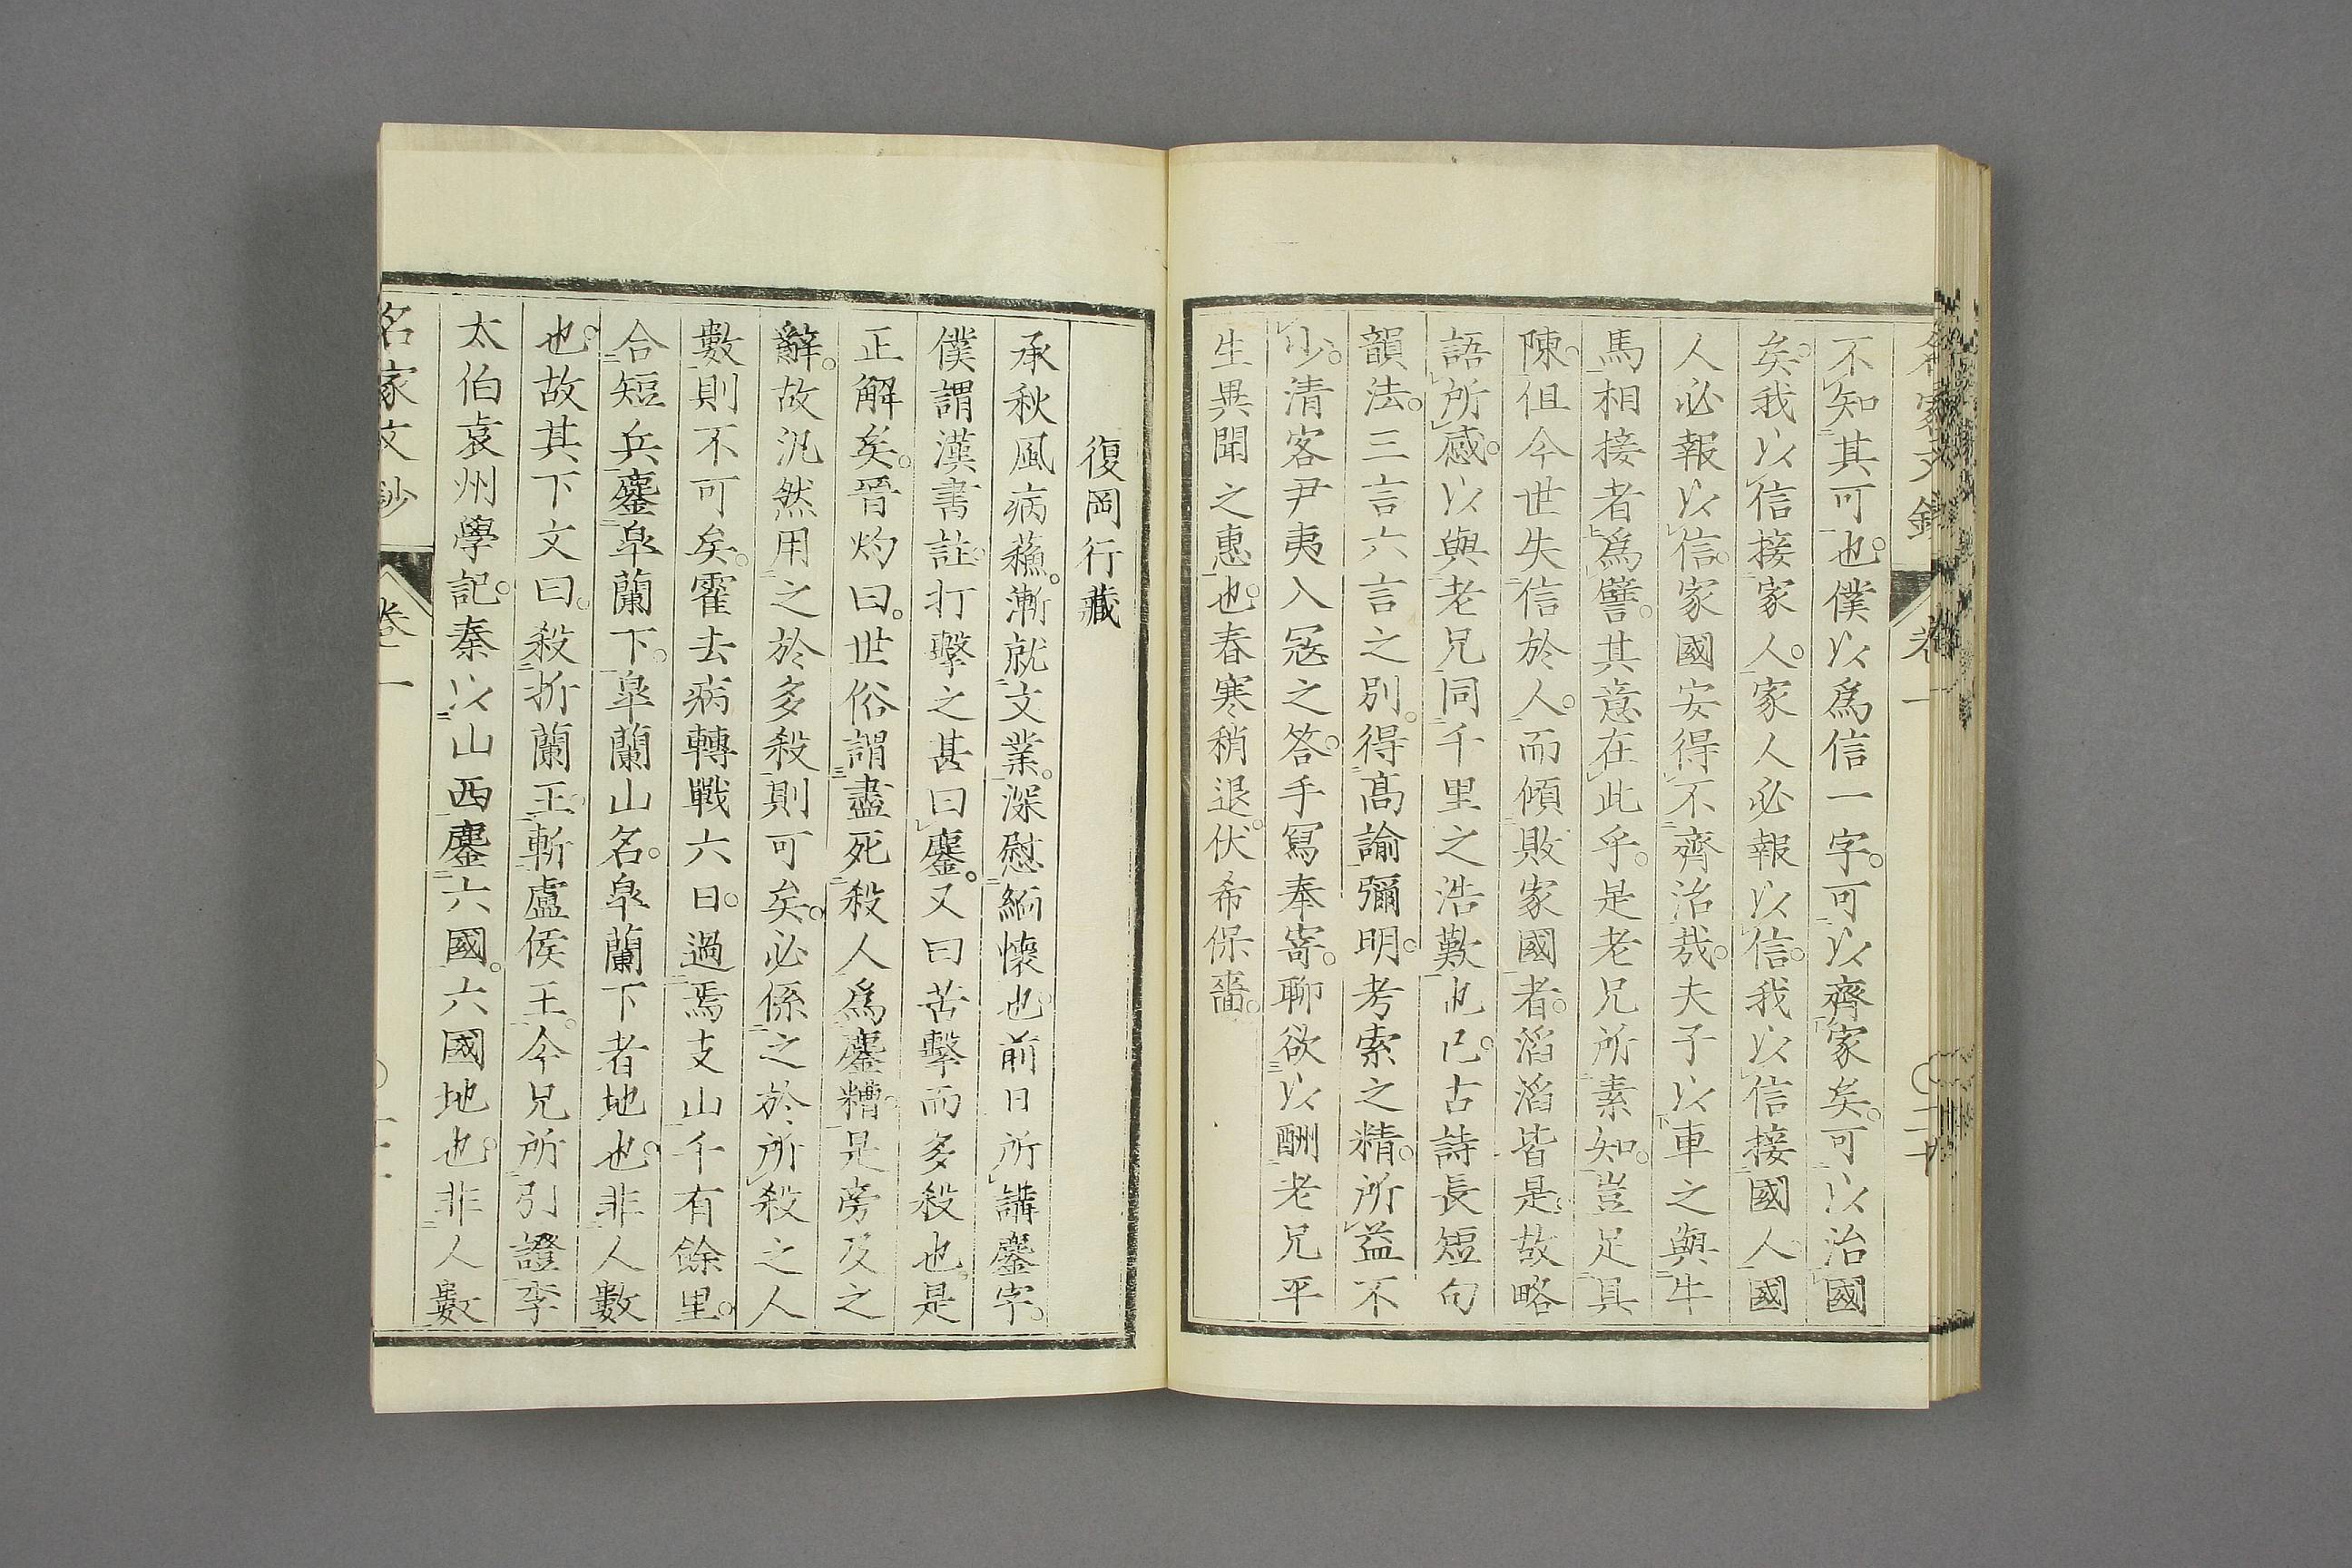 名家文鈔 卷一
不知其可也。僕以爲信一字。可以齊家矣。可以治國
矣。我以信接家人。家人必報以信。我以信接國人。國
人必報以信。家國安得不齊治哉。夫子以車之與牛
馬相接者爲譬。其意在此乎。是老兄所素知。豈足具
陳。但今世失信於人。而傾敗家國者。滔滔皆是。故略
語所感。以與老兄同千里之浩歎也已。古詩長短句
韻法。三言六言之別。得高諭彌明。考索之精。所益不
少。清客尹夷入冦之答。手冩奉寄。聊欲以酬老兄平
生異聞之惠也。春寒稍退。伏希保嗇。
復岡行藏
承秋風病蘓。漸就文業。深慰緬懷也。前日所講鏖字。
僕謂漢書註。打擊之甚曰鏖。又曰苦擊而多殺也。是
正解矣。晉灼曰。世俗謂盡死殺人爲鏖糟。是旁及之
辭。故汎然用之於多殺則可矣。必係之於所殺之人
數則不可矣。霍去病轉戰六日。過焉支山千有餘里。
合短兵鏖皐蘭下。皐蘭山名。皐蘭下者地也。非人數
也。故其下文曰。殺折蘭王。斬盧侯王。今兄所引證李
太伯袁州學記。秦以山西鏖六國。六國地也。非人數
名家文鈔 卷一